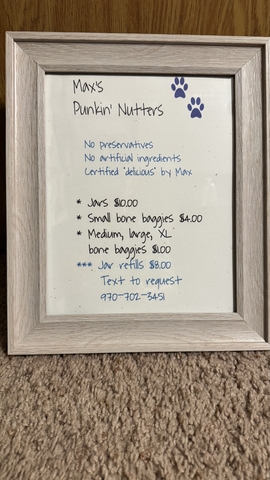 Max's
Dunkin' Nutters
No preservatives
No artificial ingredients
Certified "delicious" by Max
* Jars $10.00
* Small bone baggies $4.00
* Medium, large, XL
bone baggies $1.00
*** Jar refills $8.00
Text to request
970-702-3451